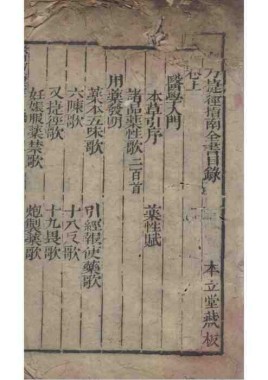 方捷徑指南全書目錄
卷上　本立堂藏板
醫學入門
本草引序　藥性賦
諸品藥性歌二百首
用藥發明
藥本五味歌　引經報使藥歌
六陳歌　十八反歌
又捷徑歌　十九畏歌
妊娠服藥禁歌　炮製藥歌